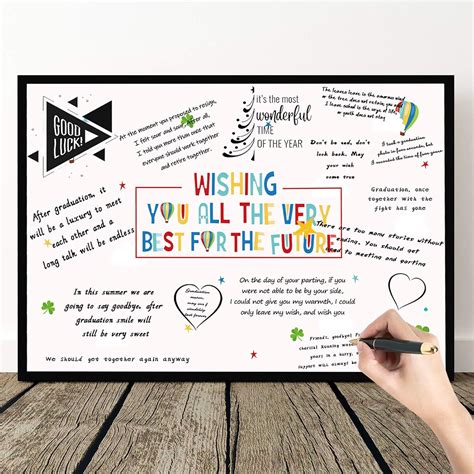 GOOD
LUCK!
At the moment you proposed to resign,
I felt sour and sour, after all,
I told you more than once that
everyone should work together
and retire together.
it's the most
wonderful
TIME
OF THE YEAR
The leaves leave is the
or the tree does not
leaves
goats does not play
Don't be sad, don't
look back. May
your wish
with you
I attended a graduation
WISHING
YOU ALL THE VERY
BEST FOR THE FUTURE
After graduation, it
will be a luxury to meet
each other and a
long talk will be endless
Graduation, once
together with the
fight has gone
There are too many stories without
ending, You should get
used to meeting and parting
In this summer we are
going to say goodbye, after
graduation smile will
still be very sweet
Graduation
On the day of your parting, if you
were not able to be by your side,
I could not give you my warmth, I could
only leave my wish, and wish you
Friends, goodbye!
years in a hurry,
support each
We should get together again anyway